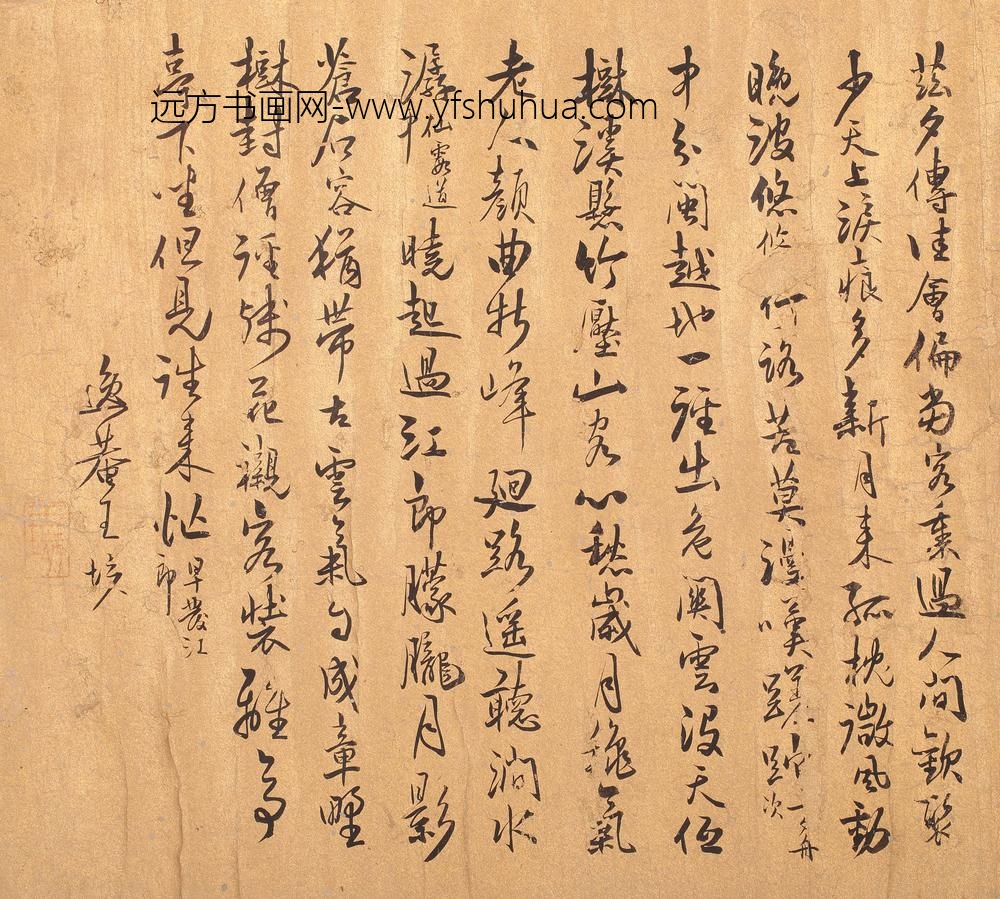 远方书画网-www.yfshuhua.com
茲夕傳佳會偏當客裏過人間歡聚
少天上淚痕多新月來孤枕微風動
晚波悠悠行路苦莫謾嘆蹉跎七夕舟次
中分閩越地一徑出危關雲沒天低
樹溪懸竹壓山客心愁歲月
老顏曲折峰廻路遥聽澗水
潺仙霞道曉起過江郎朦朧月影
蒼石容猶帶古雲氣自成章野
樹封僧徑殘花襯客裝難尋
亭下坐但見往来忙早發江郎
逸菴王